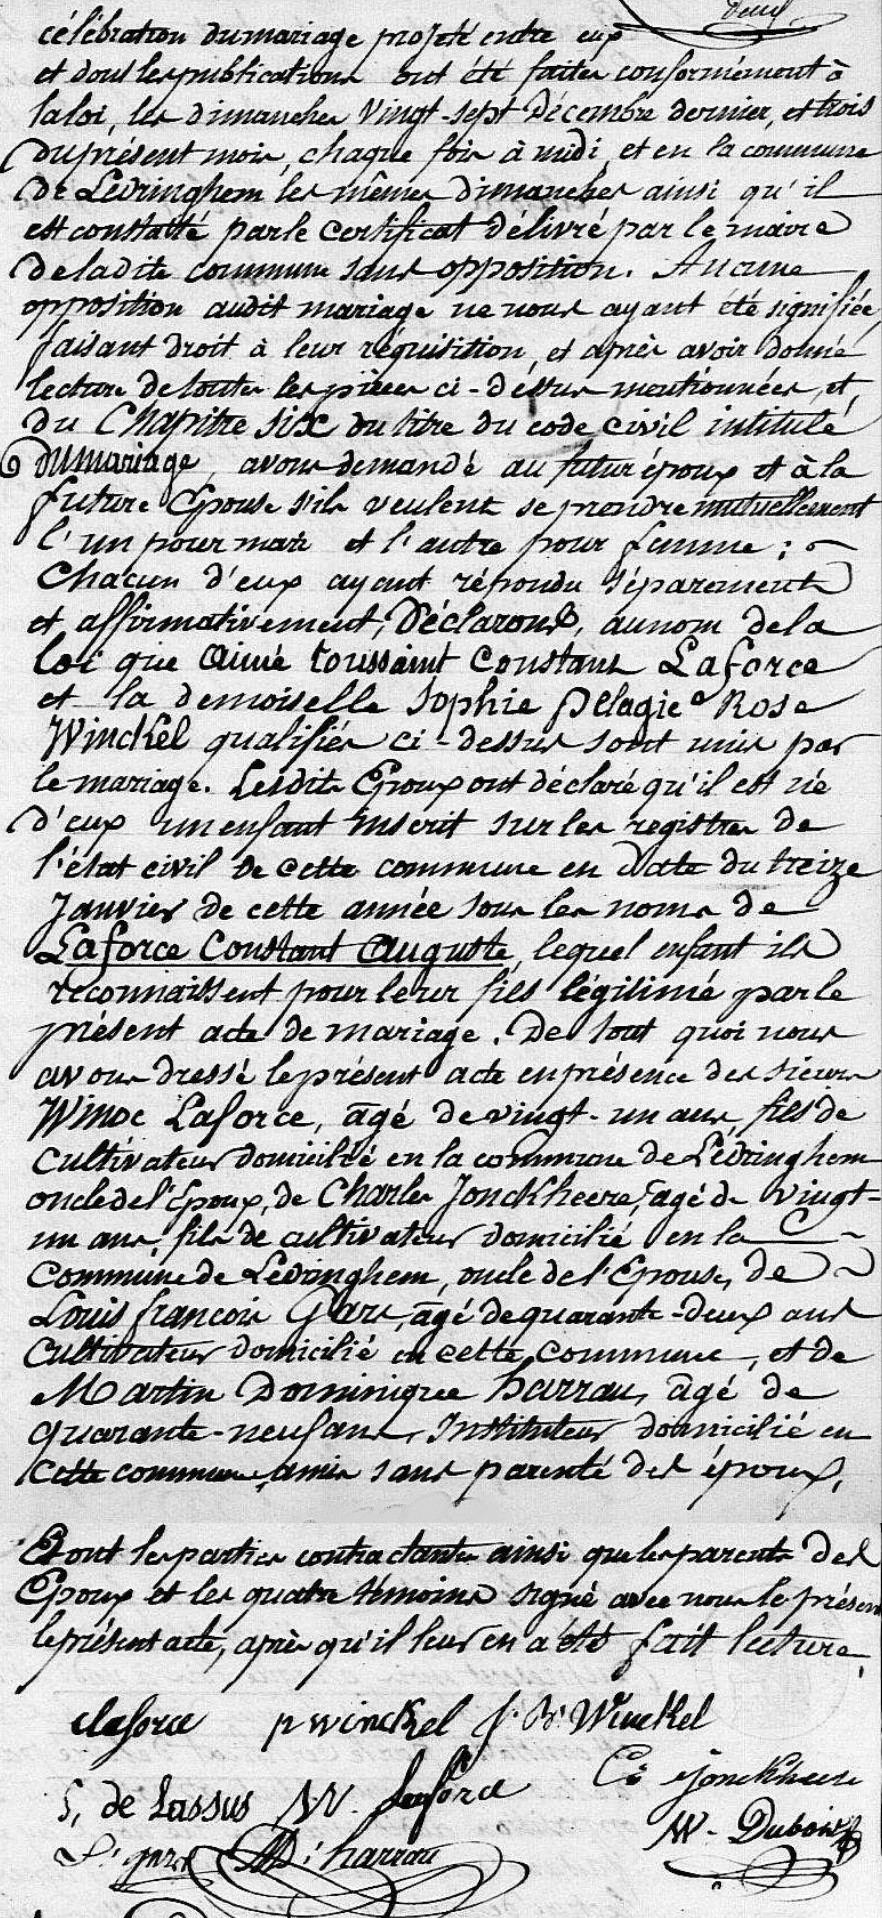 Deux
célébration du mariage projeté entre eux
et dont les publications ont été faites conformément à
la loi, les dimanches Vingt-sept Décembre dernier, et trois
du présent mois, chaque fois à midi, et en la commune
de Ledringhem les mêmes dimanches ainsi qu'il
est constatté par le certificat délivré par le maire
de la dite commune sans opposition. Aucune
opposition audit mariage ne nous ayant été signifiée,
faisant droit à leur réquisition, et après avoir donné
lecture de toutes les pièces ci-dessus mentionnées, et
du Chapitre six du titre du code civil intitulé
Du mariage, avons demandé au futur époux et à la
future Epouse s'ils veulent se prendre mutuellement
l'un pour mari et l'autre pour femme ;
Chacun d'eux ayant répondu séparement
et affirmativement, Déclarons, au nom de la
loi que Aimé toussaint Constant Laforce
et la demoiselle Sophie Pélagie Rose
Winckel qualifiés ci-dessus sont unis par
le mariage. Lesdits Epoux ont déclaré qu'il est né
d'eux un enfant inscrit sur les registres de
l'état civil de cette commune en date du treize
Janvier de cette année sous les noms de
Laforce Constant Auguste, lequel enfant ils
reconnaissent pour leur fils légitimé par le
présent acte de mariage. De tout quoi nous
avons dressé le présent acte en présence des sieurs
Winoc Laforce, âgé de vingt-un ans, fils de
Cultivateur domicilié en la commune de Ledringhem
oncle de l'Epoux, de Charles Jonckheere, âgé de vingt-
un ans, fils de cultivateur domicilié en la
Commune de Ledringhem, oncle de l'Epouse, de
Louis françois Gars, âgé de quarante-deux ans
Cultivateur domicilié en cette commune, et de
Martin Dominique harrau, âgé de
quarante-neuf ans, Instituteur domicilié en
Cette commune, amis sans parenté des époux,
Et ont les parties contractantes ainsi que les parents des
Epoux et les quatre témoins signé avec nous le présent
le présent acte, après qu'il leur en a été fait lecture,
claforce pwinckel J. B. Winckel
S, de Lassus W. Laforce C: Jonckheere
L: gars MD: harrau W. Dubois